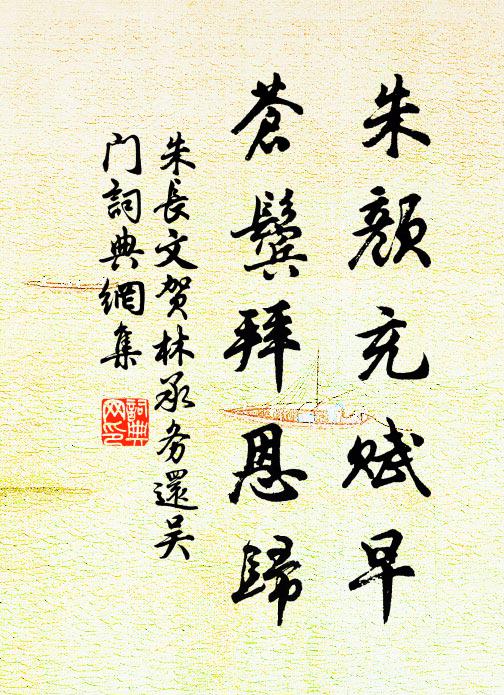 朱颜充赋早
苍鬓拜恩归
朱長文贺林承务還吴
门詞典網集
詞典
网印